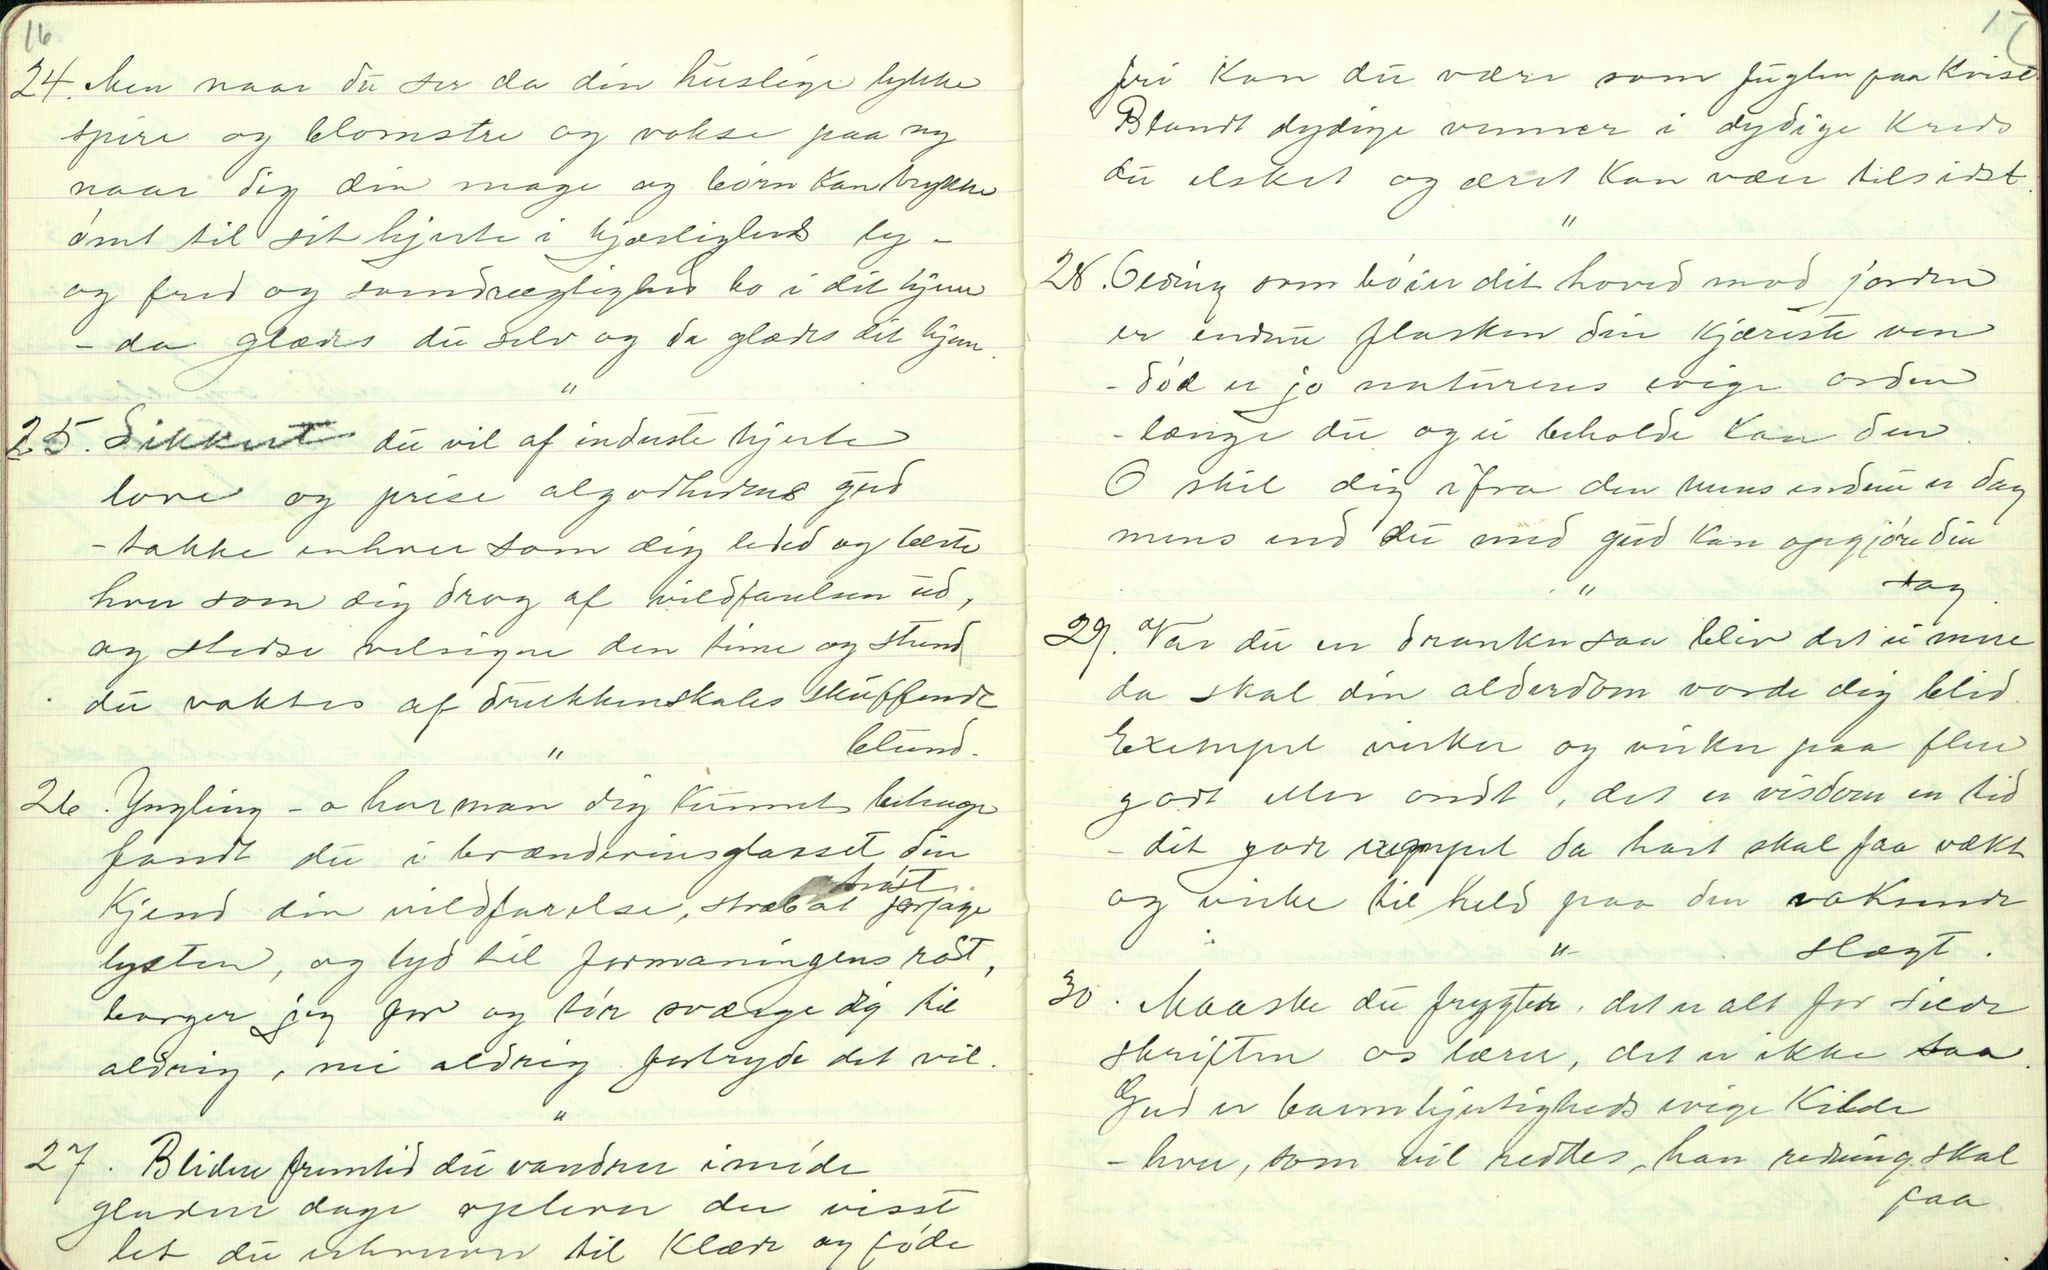 16
24. Men naar du ser da din huslige lykke
spire og blomstre og vokse paa ny
naar dig din mage og börn kan trykke
ömt til sit hjerte i kjærligheds ly -
og fred og samdrægtighed bo i dit hjem
- da glædes du selv og da glædes dit hjem.
"
25. Sikkert du vil af inderste hjerte
love og prise algodhedens gud
- takke enhver som dig leded og lærte
hver som dig drog af vildfarelsen ud,
og stedse velsigne den time og stund
du vaktes af drukkenskabs skuffende
blund.
"
26. Yngling - o har man dig kunnet bedrage
fandt du i brændevinsglasset din
tröst.
Kjend din vildfarelse, stræb at forjage
lysten, og lyd til formaningens röst,
borger jeg for og tör sværge dig til
aldrig, nei aldrig fortryde det vil.
"
27. Blidere fremtid du vandrer imöde
gladere dage oplever du visst
let du erhverver til klæde og föde
17
fri kan du være som fuglen paa kvist
Blandt dydige venner i dydige kreds
du elsket og æret kan være tilsidst.
"
28. Olding som böier dit hoved mod jorden
er endnu flasken din kjæreste ven
- död er jo naturens evige orden
- længe du og ei beholde kan den.
O skil dig ifra den mens endnu er dag
mens end du med gud kan opgjöre din
sag.
"
29. Var du en dranker saa bliv det ei mere
da skal din alderdom vorde dig blid.
Exempel virker og virker paa flere
godt eller ondt, det er visdom en tid
- dit gode exempel da hast skal faa vækt
og virke til held paa den voksende
"
slægt.
30. Maaske du frygter, det er alt for silde
skriften os lærer, det er ikke saa.
Gud er barmhjertigheds evige kilde
- hver, som vil reddes, han redning skal
faa